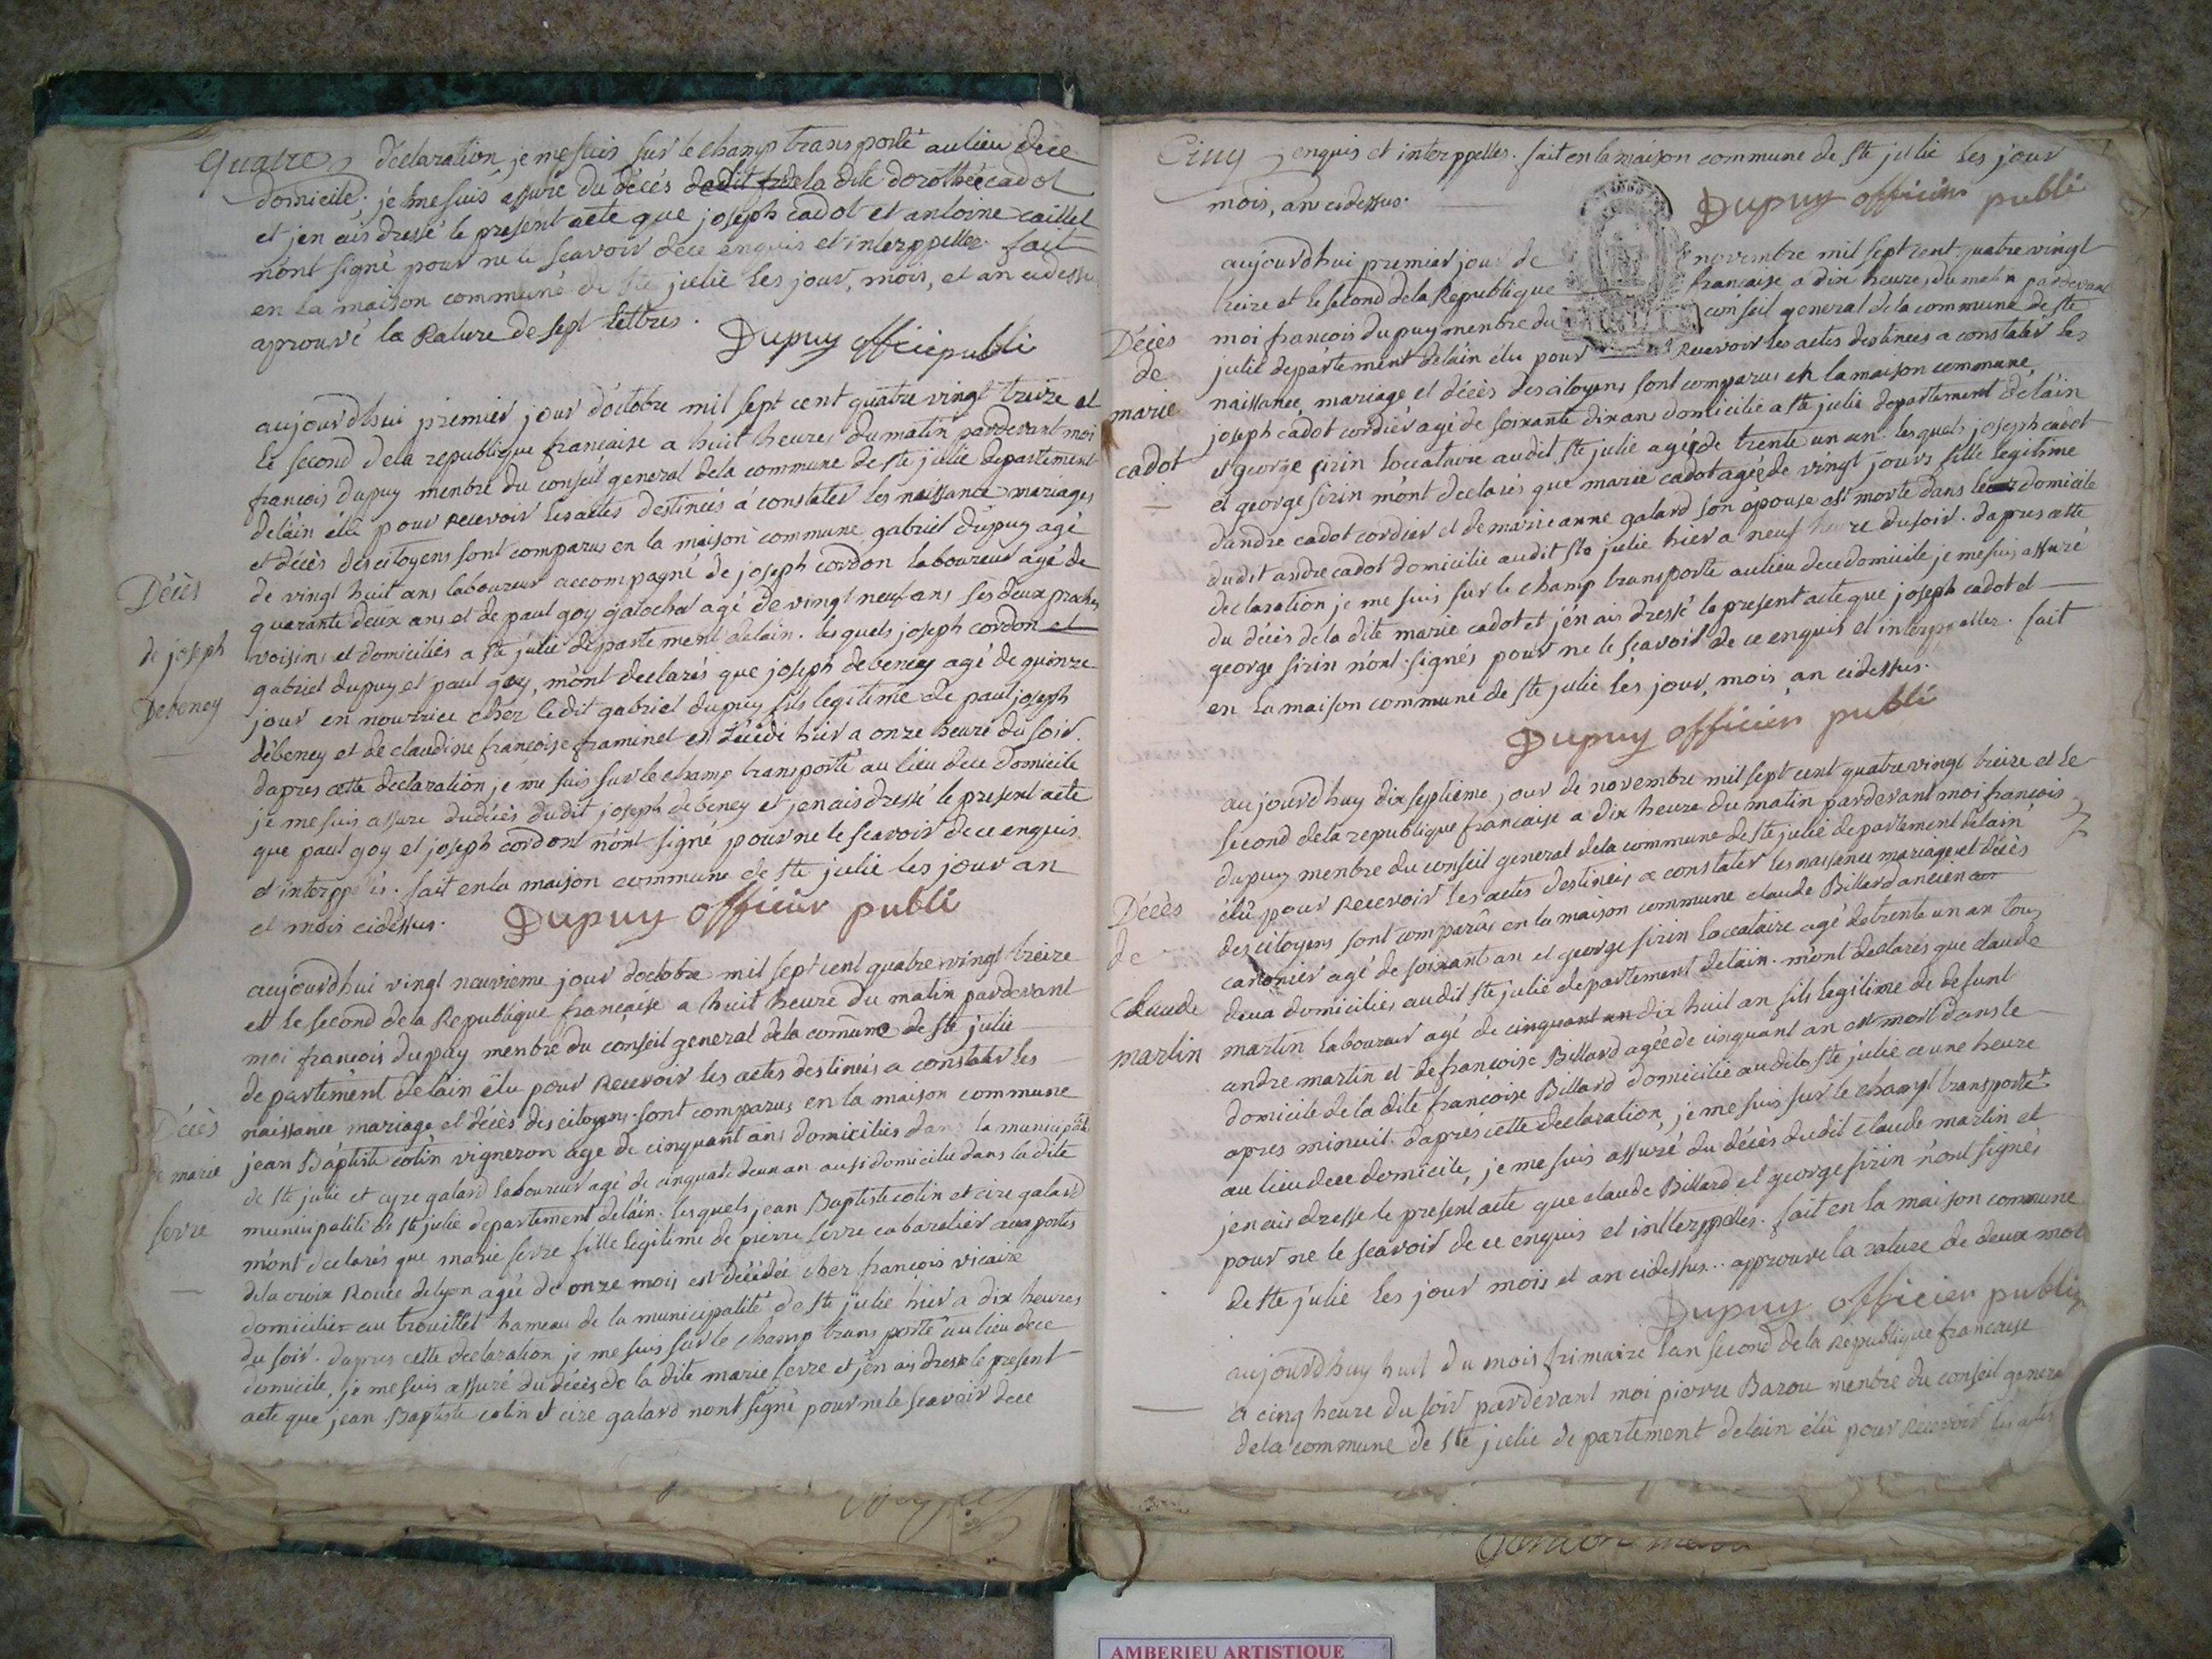 quatre déclaration, je me suis sur le champ transporté au lieu dece
domicile; je me suis assuré du décès de la dite dorothée cadot
et jen ais dressé le present acte que joseph cadot et antoine caillet
n'ont signé pour ne le scavoir dece enquis et interppellez. fait
en la maison commune de ste julie les jour, mois, et an cidessu
aprouvé la Rature de sept lettres.
Dupuy officie publi
aujourdhui premier jour doctobre mil sept cent quatre vingt treize et
le second dela republique francaise a huit heures du matin pardevant moi
francois dupuy menbre du conseil general dela commune de ste julie departement
delain élu pour recevoir les actes destinées a constater les naissance mariages
et décès des citoyens sont comparus en la maison commune gabriel dupuy agé
de vingt huit ans laboureur accompagné de joseph cordon laboureur agé de
quarante deux ans et de paul goy galochat agé de vingt neuf ans ses deux proches
voisins et domiciliés a ste julie departement delain. lesquels joseph cordon et
gabriel dupuy et paul goy, m'ont declarés que joseph debeney agé de quinze
jour en nourrice chez ledit gabriel dupuy fils legitime de paul joseph
débeney et de claudine francoise framinet est décédé hier a onze heure du soir.
dapres cette declaration je me suis sur le champ transporté au lieu dece domicile
je me suis assure du décès dudit joseph debeney et jen ais dressé le present acte
que paul goy et joseph cordont n'ont signé pour ne le scavoir dece enquis
et interppelés. fait en la maison commune de ste julie les jour an
et mois cidessus. Dupuy officier publi
Décès
de joseph
Debeney
aujourd'hui vingt neuvieme jour doctobre mil sept cent quatre vingt treize
et le second dela Republique française a huit heure du matin pardevant
moi francois dupuy menbre du conseil general dela comune de ste julie
departement delain élu pour Recevoir les actes destinées a constater les
naissance mariage et décès des citoyens. sont comparus en la maison commune
jean Baptiste colin vigneron agé de cinquant ans domiciliés dans la municipalité
de ste julie et cyre galard laboureur agé de cinquante deux an aussi domicilié dans la dite
municipalité de ste julie departement delain. lesquels jean Baptiste colin et cire galard
m'ont declarés que marie serre fille legitime de pierre serre cabaretier aux portes
dela croix Rouce delyon agée de onze mois est décédée chez francois vicaire
domicilier au trouillet hameau de la municipalité de ste julie hier a dix heures
du soir. dapres cette declaration je me suis sur le champ transporté au lieu dece
domicile, je me suis assuré du décès de la dite marie serre et jen ais dressé le present
acte que jean Baptiste colin et cire galard nont signé pour ne le scavoir dece
Décès
de marie
serre
Cinq enquis et interppelles. fait en la maison commune de ste julie les jour
mois, an cidessus.
Dupuy officier publi
aujourdhui premier jour de novembre mil sept cent quatre vingt
treize et le second dela Republique francaise a dix heures du matin pardevant
moi francois dupuy menbre du conseil general dela commune de ste
julie departement delain élu pour Recevoir les actes destinees a constater les
naissance, mariage et décès des citoyens sont comparus en la maison commune,
joseph cadot cordier agé de soixante dix ans domicilié a ste julie departement delain
et george sirin loccataire audit ste julie agé de trente un an. lesquels joseph cadot
et george sirin m'ont declarés que marie cadot agée de vingt jours fille legitime
dandre cadot cordier et de marie anne galard son épouse est morte dans le domicile
dudit andre cadot domicilié audit ste julie hier a neuf heure du soir. dapres cette
declaration je me suis sur le champ transporté au lieu dece domicile je me suis assuré
du décès dela dite marie cadot et j'en ais dressé le present acte que joseph cadot et
george sirin n'ont signés pour ne le scavoir de ce enquis et interppeller. fait
en la maison commune de ste julie les jour, mois an cidessus.
Dupuy officier publi
Décès
de
marie
cadot
aujourdhuy dixseptieme jour de novembre mil sept cent quatre vingt treize et le
second dela republique francaise a dix heure du matin pardevant moi francois
dupuy menbre du conseil general dela commune de ste julie departement delain
élû pour Recevoir les actes destineés a constater les naissance mariage et décès
des citoyens sont comparûs en la maison commune claude Billard ancien
canonier agé de soixant an et george sirin loccataire agé de trente un an tous
deux domiciliés audit ste julie departement delain. m'ont declarés que claude
martin laboureur agé de dix huit an fils legitime de defunt
andre martin et de francoise Billard agée de cinquant an est mort dans le
domicile de la dite francoise Billard domicilié audite ste julie a une heure
apres minuit. d'après cette declaration, je me suis sur le champt transporté
au lieu dece domicile, je me suis assuré du décès dudit claude martin et
jen ais dresse le present acte que claude Billard et george sirin n'ont signés
pour ne le scavoir de ce enquis et intterppelles. fait en la maison commune
de ste julie les jour mois et an cidessus.. approuve la rature de deux mot
Dupuy officier publi
Décès
de
claude
martin
aujourdhuy huit du mois frimaire l'an second dela Republique francaise
a cinq heure du soir pardevant moi pierre Barou menbre du conseil genera
dela commune de ste julie departement delain élû pour Recevoir les actes
AMBERIEU ARTISTIQUE